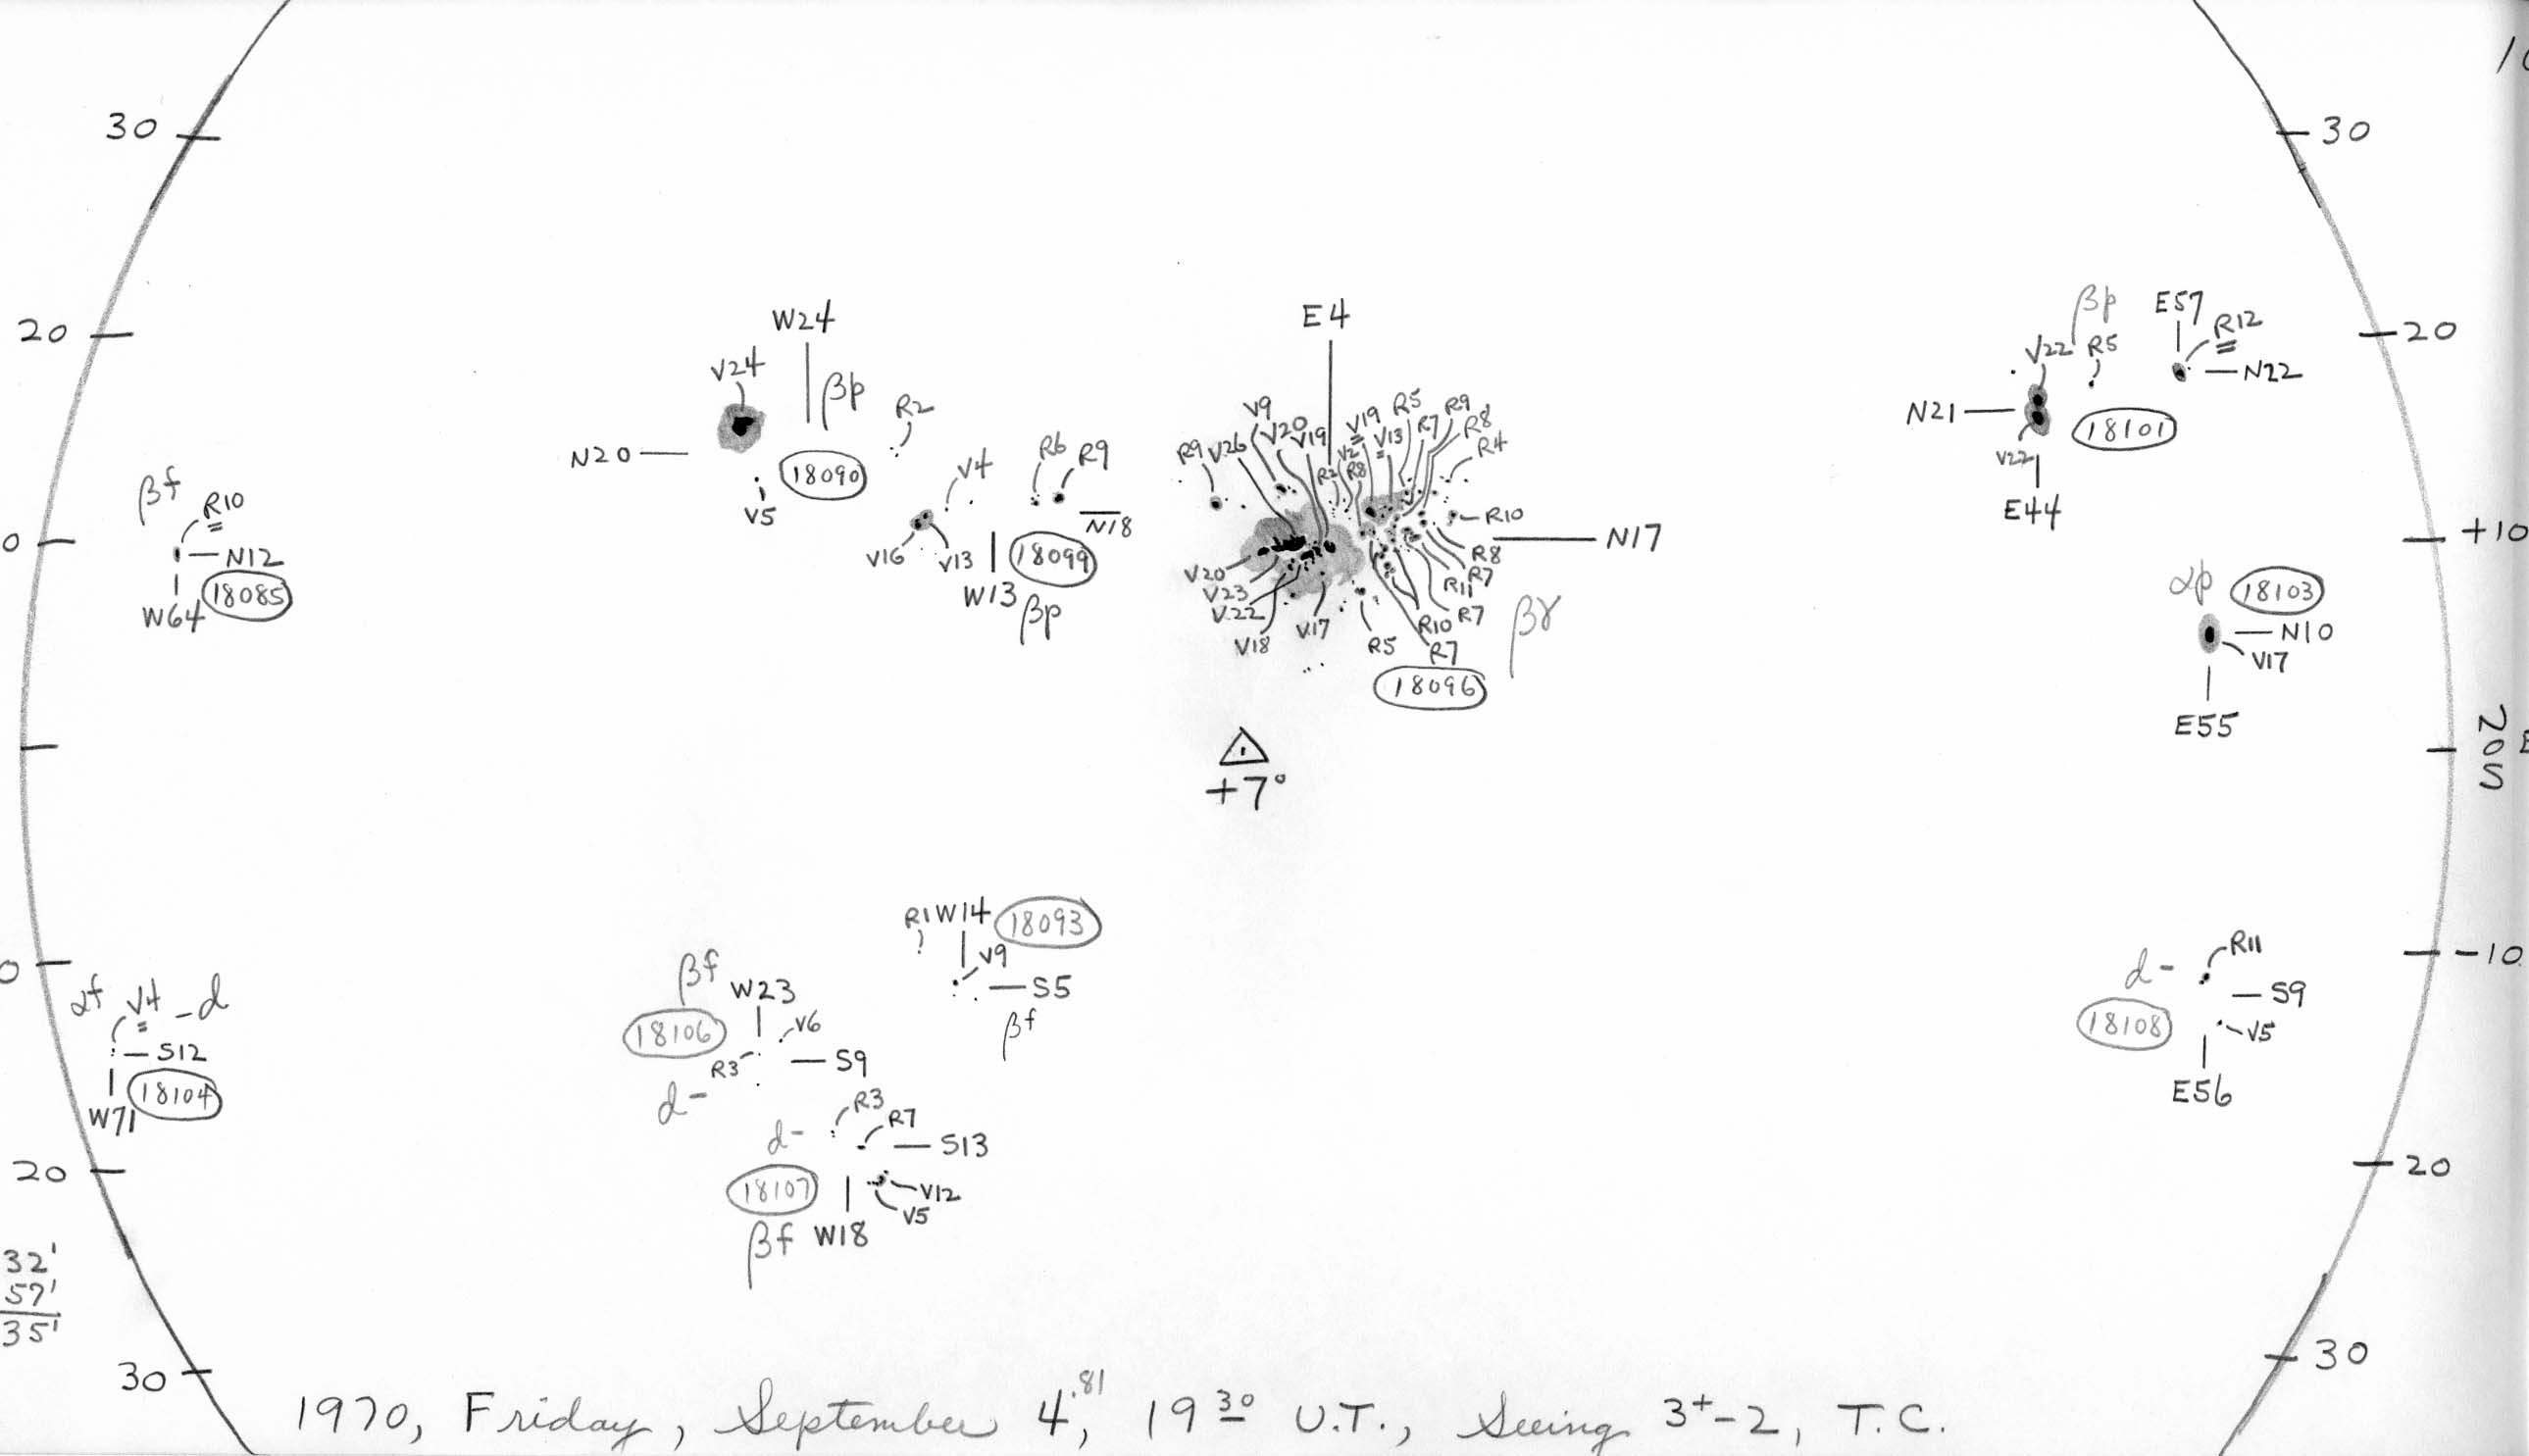 30
30
20
20
0
+10
0
-10
20
20
30
30
20S
W24
V24
βp
R2
N20
18090
V5
V4
R6
R9
N18
V16
V13
18099
W13
βp
βf
R10
N12
18085
W64
E4
V9
V20
V19
V19
V13
R5
R7
R9
R8
R4
R9
V26
R2
V2
R8
R10
N17
R8
R7
R11
R7
R10
R7
R5
V20
V23
V22
V18
V17
βγ
18096
+7°
βp
E57
R12
V22
R5
N22
N21
18101
V22
E44
αp
18103
N10
V17
E55
R1
W14
18093
V9
S5
βf
βf
W23
18106
V6
R3
S9
d-
R3
R7
d-
S13
18107
V12
V5
βf
W18
αf
V4
-d
S12
18104
W71
R11
d-
S9
18108
V5
E56
32'
57'
35'
1970, Friday, September 4.81, 19 30 U.T., Seeing 3+-2, T.C.